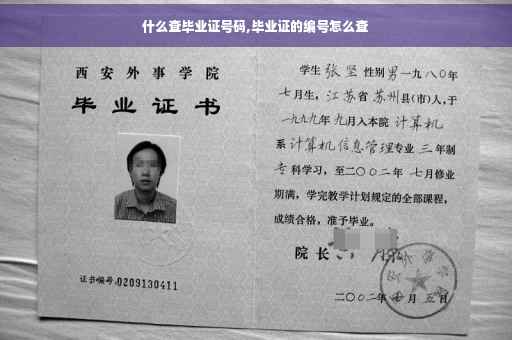 什么查毕业证号码,毕业证的编号怎么查
西安外事学院
毕业证书
证书编号:0209130411
学生 张坚 性别男一九八〇年
七月生,江苏省苏州县(市)人,于
一九九九年九月入本院 计算机
系计算机信息管理专业 三 年制
专科学习,至二〇〇二年 七月修业
期满,学完教学计划规定的全部课程,
成绩合格,准予毕业。
院长
二〇〇二年 月五日